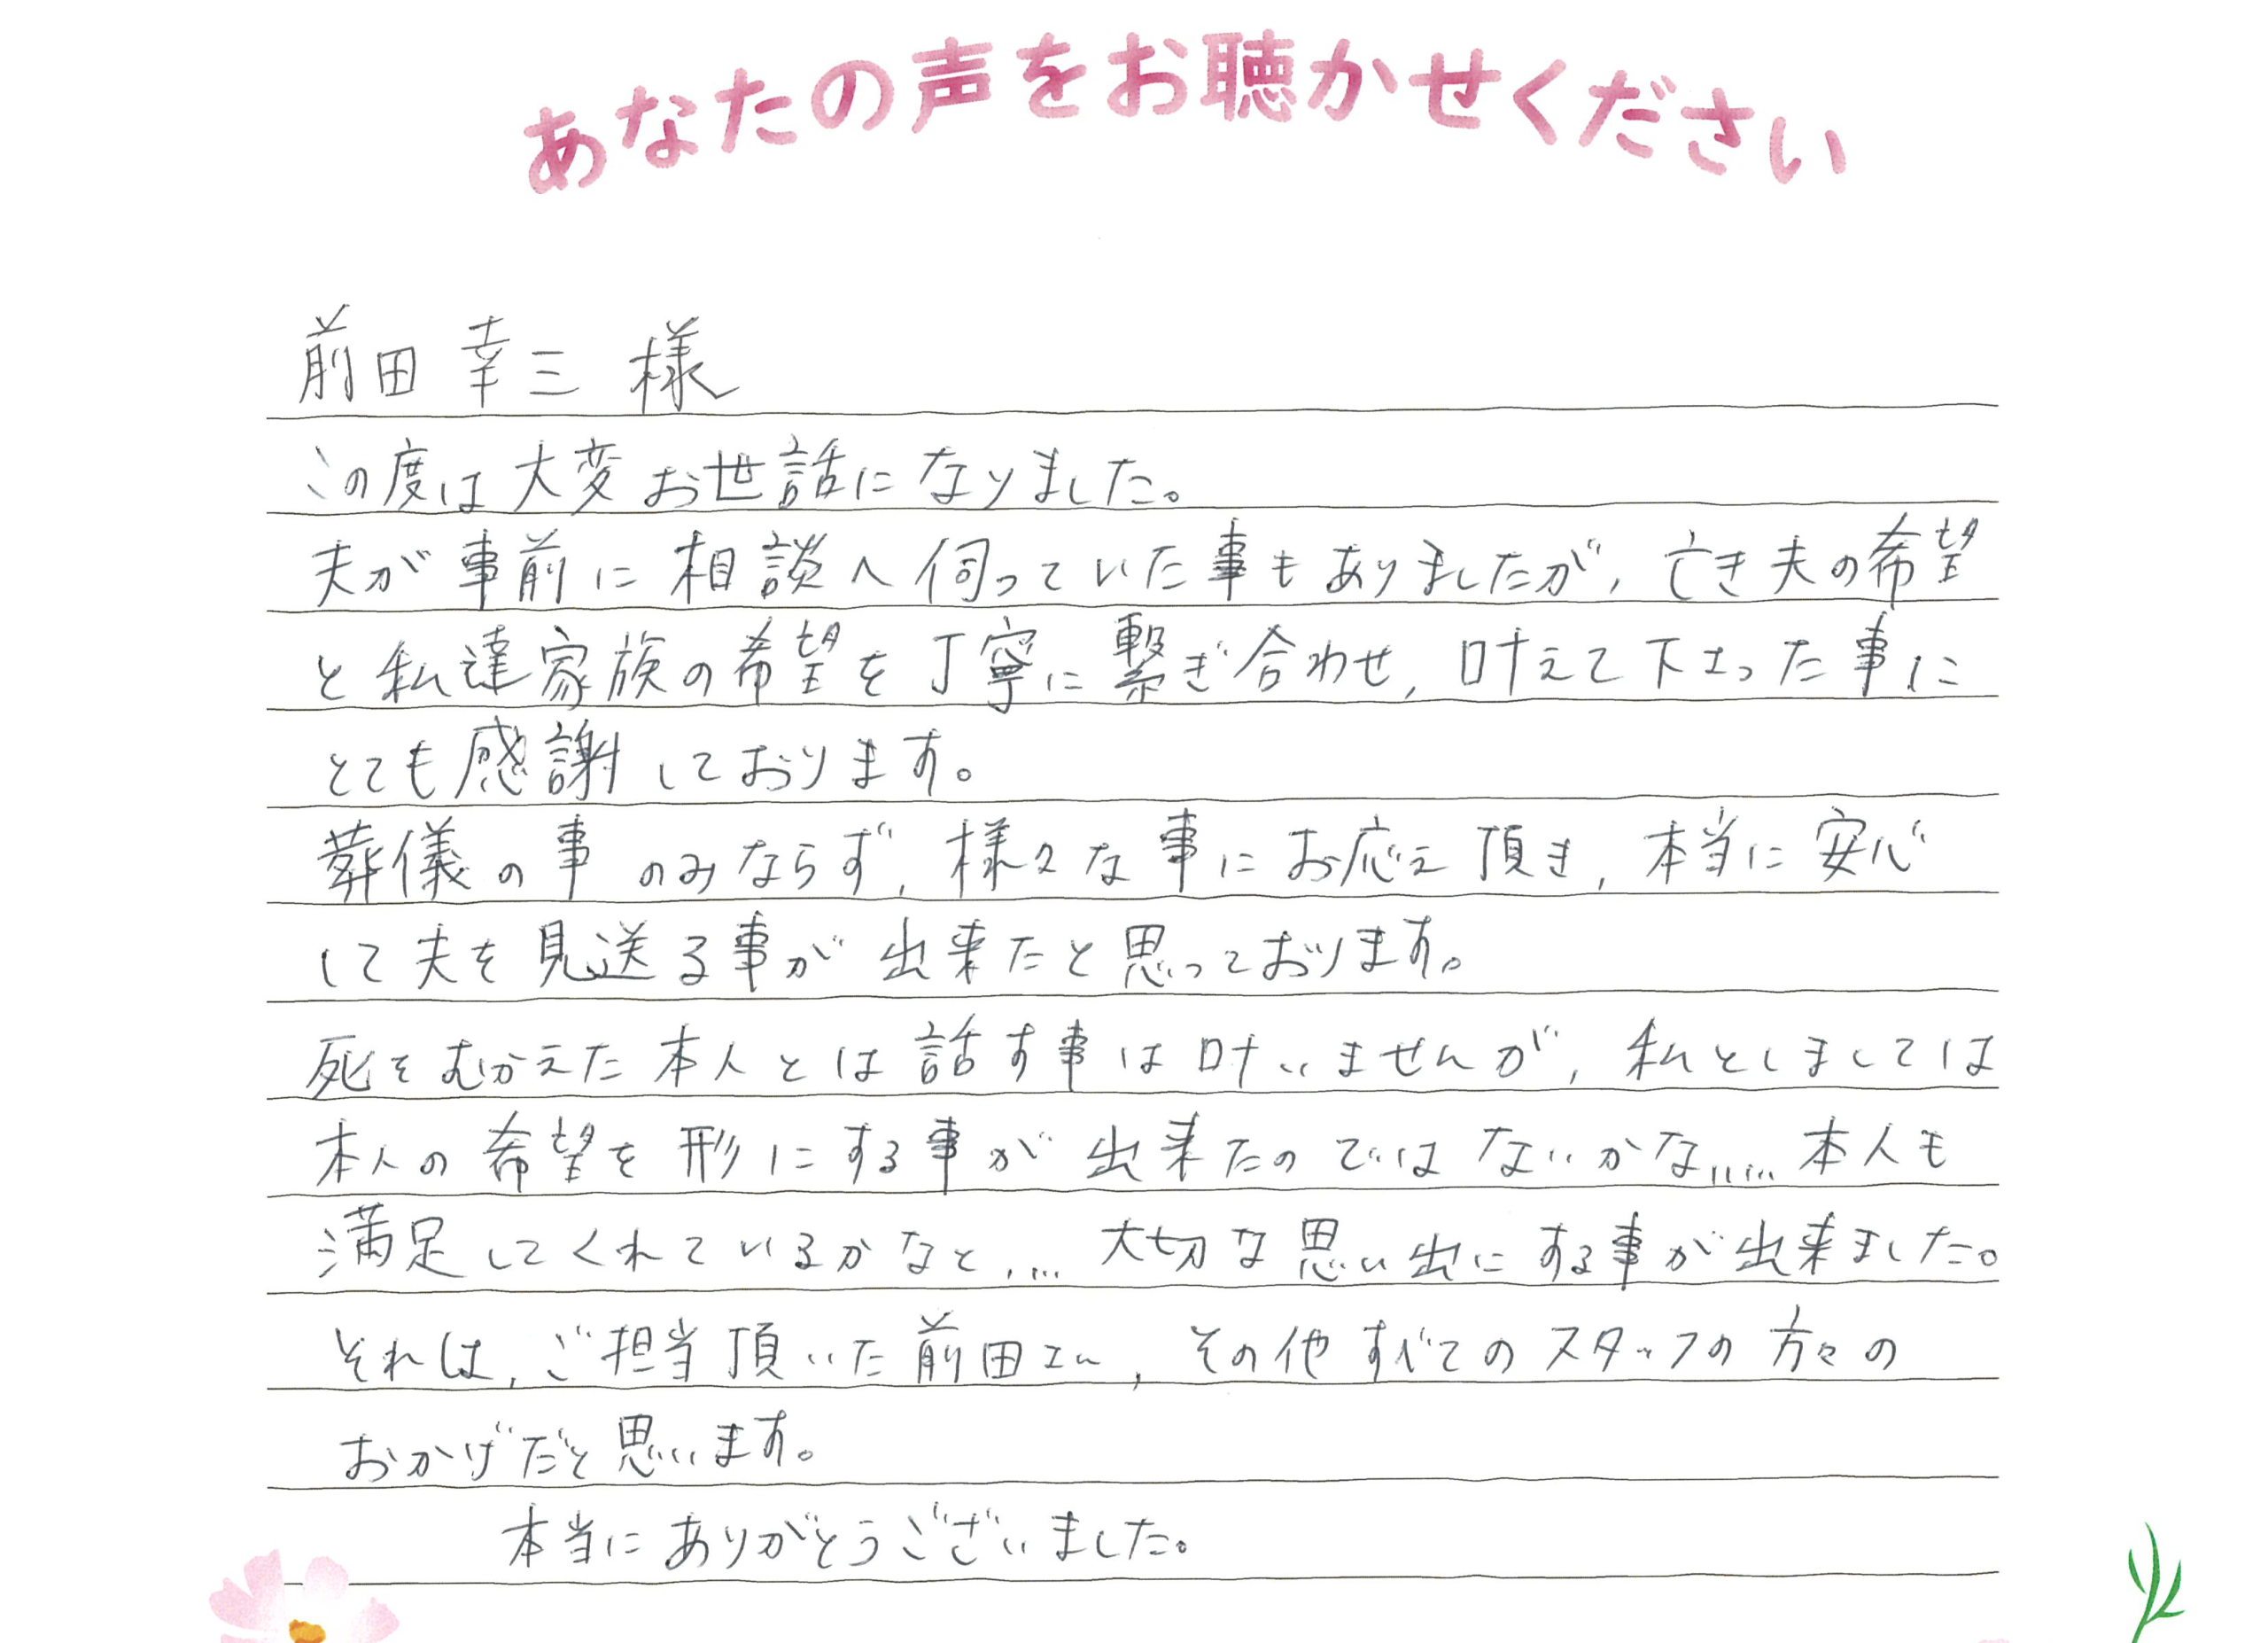 あなたの声をお聴かせください
前田 幸三 様
この度は大変お世話になりました。
夫が事前に相談へ伺っていた事もありましたが、亡き夫の希望
と私達家族の希望を丁寧に繋ぎ合わせ、叶えて下さった事に
とても感謝しております。
葬儀の事のみならず、様々な事にお応え頂き、本当に安心
して夫を見送る事が出来たと思っております。
死をむかえた本人とは話す事は叶いませんが、私としましては
本人の希望を形にする事が出来たのではないかな..... 本人も
満足してくれているかなと.... 大切な思い出にする事が出来ました。
それは、ご担当頂いた前田さん、その他すべてのスタッフの方々の
おかげだと思います。
本当にありがとうございました。